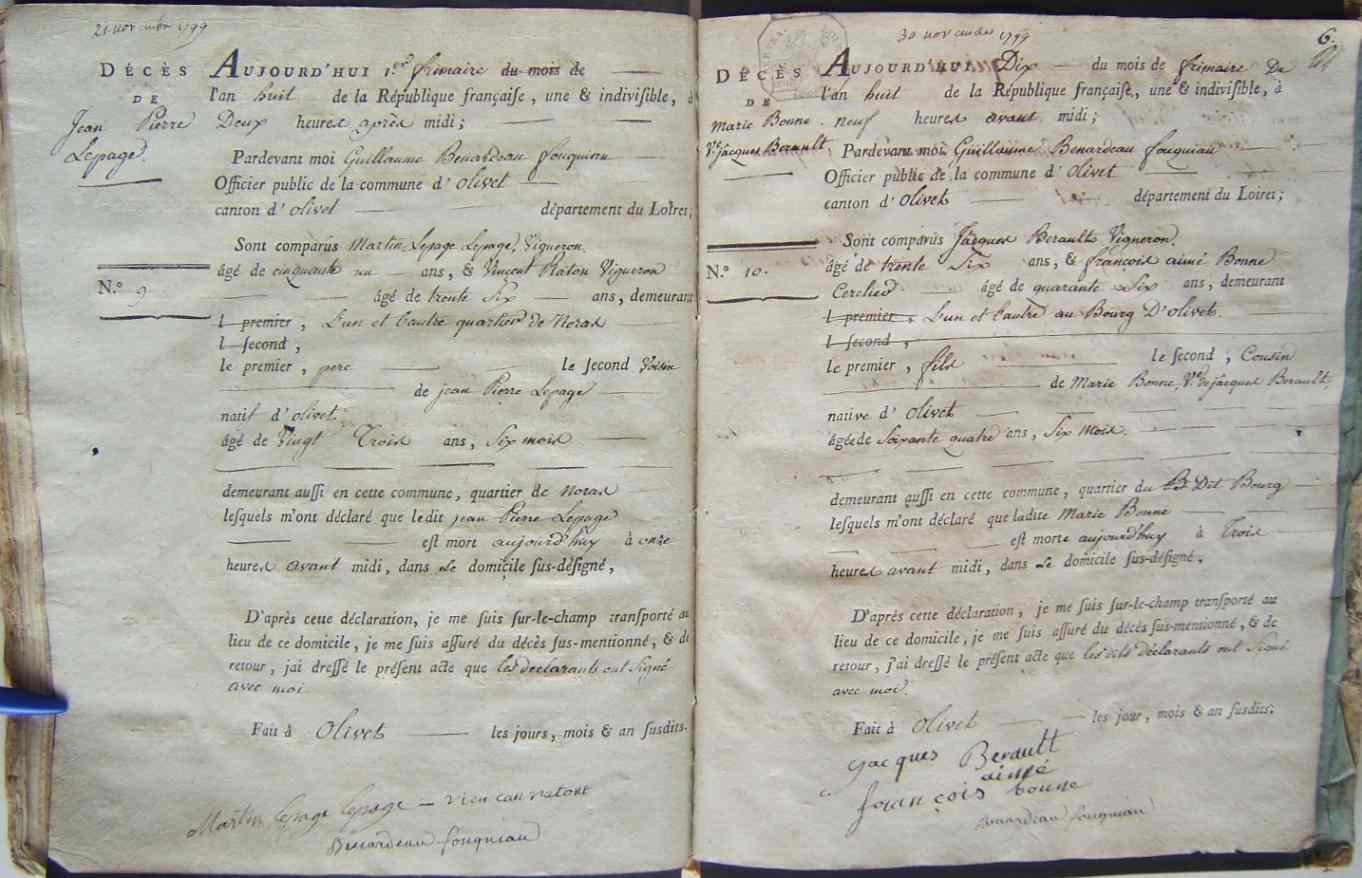 21 novembre 1799
DÉCÈS
DE
Jean Pierre
Lepage.
N.º 9
AUJOURD'HUI 1.er frimaire du mois de
l'an huit de la République françaiſe, une & indiviſible, à
Deux heures après midi;
Pardevant moi Guillaume Benardeau fouquiau
Officier public de la commune d' Olivet
canton d' Olivet département du Loiret;
Sont comparus Martin Lepage Lepage, Vigneron.
âgé de cinquante un ans, & Vincent Platon Vigneron
âgé de trente Six ans, demeurant
l premier, L'un et l'autre quartier de Noras
l ſecond,
le premier, pere le ſecond Voisin
de jean Pierre Lepage
natif d'olivet
âgé de Vingt Trois ans, Six mois
demeurant auſſi en cette commune, quartier de Noras
leſquels m'ont déclaré que ledit jean Pierre Lepage
eſt mort aujourd'huy à onze
heures avant midi, dans Le domicile ſus-déſigné,
D'après cette déclaration, je me ſuis ſur-le-champ tranſporté au
lieu de ce domicile, je me ſuis aſſuré du décès ſus-mentionné, & de
retour, jai dreſſé le préſent acte que les declarants ont Signé
avec moi
Fait à Olivet les jours, mois & an ſusdits.
Martin lepage lepage
Benardeau fouquiau
30 novembre 1799
6.
DÉCÈS
DE
Marie Bonne
Ve. jacques Berault
N.º 10.
AUJOURD'HUI Dix du mois de frimaire De
l'an huit de la République françaiſe, une & indiviſible, à
neuf heures avant midi;
Pardevant moi Guillaume Benardeau fouquiau
Officier public de la commune d' Olivet
canton d' Olivet département du Loiret;
Sont comparus Jacques Berault Vigneron.
âgé de trente Six ans, & françois aimé Bonne
Cerclier âgé de quarante Six ans, demeurant
l premier, L'un et l'autre au Bourg D'olivet.
l ſecond,
le premier, fils le ſecond, Cousin
de Marie Bonne, Ve. de jacques Berault
native d' Olivet
âgée de Soixante quatre ans, Six Mois.
demeurant auſſi en cette commune, quartier du B Dit Bourg
leſquels m'ont déclaré que ladite Marie Bonne
eſt morte aujourd'huy à Trois
heures avant midi, dans Le domicile ſus-déſigné,
D'après cette déclaration, je me ſuis ſur-le-champ tranſporté au
lieu de ce domicile, je me ſuis aſſuré du décès ſus-mentionné, & de
retour, j'ai dreſſé le préſent acte que les dits déclarants ont Signé
avec moi.
Fait à Olivet les jour, mois & an ſusdits;
jacques Berault
aimé
françois bonne
Benardeau fouquiau